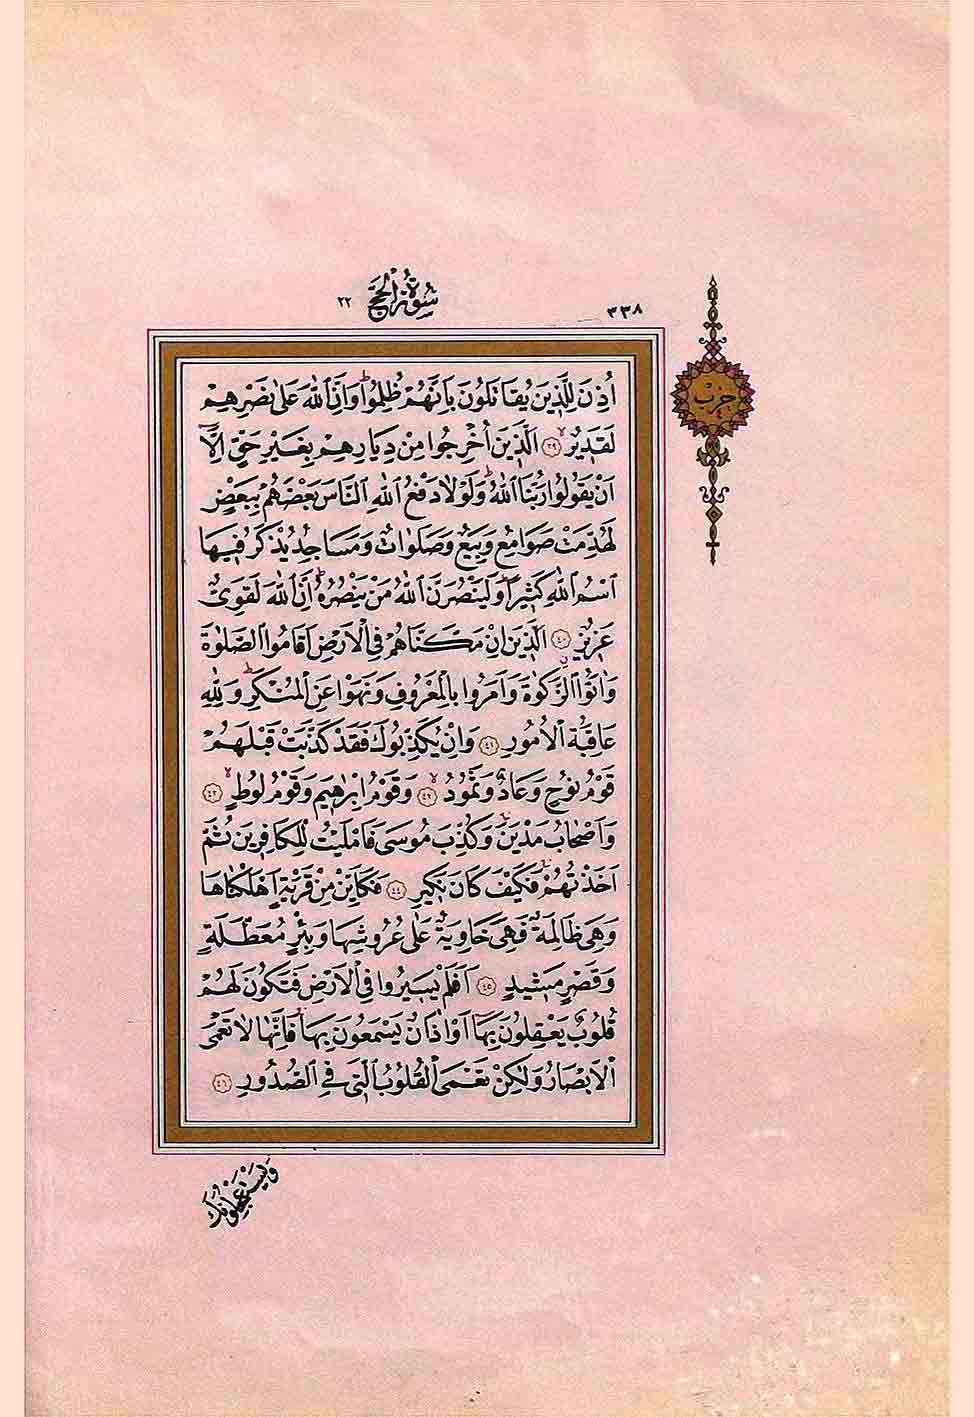 ٣٣٨
سُورَةُ الْحَجِّ ٢٢
حزب
اُذِنَ لِلَّذٖينَ يُقَاتَلُونَ بِاَنَّهُمْ ظُلِمُواؕ وَاِنَّ اللّٰهَ عَلٰى نَصْرِهِمْ
لَقَدٖيرٌۙ ﴿٣٩﴾ اَلَّذٖينَ اُخْرِجُوا مِنْ دِيَارِهِمْ بِغَيْرِ حَقٍّ اِلَّٓا
اَنْ يَقُولُوا رَبُّنَا اللّٰهُؕ وَلَوْلَا دَفْعُ اللّٰهِ النَّاسَ بَعْضَهُمْ بِبَعْضٍ
لَهُدِّمَتْ صَوَامِعُ وَبِيَعٌ وَصَلَوَاتٌ وَمَسَاجِدُ يُذْكَرُ فٖيهَا
اسْمُ اللّٰهِ كَثٖيرًاؕ وَلَيَنْصُرَنَّ اللّٰهُ مَنْ يَنْصُرُهُؕ اِنَّ اللّٰهَ لَقَوِىٌّ
عَزٖيزٌ ﴿٤٠﴾ اَلَّذٖينَ اِنْ مَكَّنَّاهُمْ فِى الْاَرْضِ اَقَامُوا الصَّلٰوةَ
وَاٰتَوُا الزَّكٰوةَ وَاَمَرُوا بِالْمَعْرُوفِ وَنَهَوْا عَنِ الْمُنْكَرِؕ وَلِلّٰهِ
عَاقِبَةُ الْاُمُورِ ﴿٤١﴾ وَاِنْ يُكَذِّبُوكَ فَقَدْ كَذَّبَتْ قَبْلَهُمْ
قَوْمُ نُوحٍ وَعَادٌ وَثَمُودُۙ ﴿٤٢﴾ وَقَوْمُ اِبْرٰهٖيمَ وَقَوْمُ لُوطٍۙ ﴿٤٣﴾
وَاَصْحَابُ مَدْيَنَۚ وَكُذِّبَ مُوسٰى فَاَمْلَيْتُ لِلْكَافِرٖينَ ثُمَّ
اَخَذْتُهُمْۚ فَكَيْفَ كَانَ نَكٖيرِ ﴿٤٤﴾ فَكَاَيِّنْ مِنْ قَرْيَةٍ اَهْلَكْنَاهَا
وَهِىَ ظَالِمَةٌ فَهِىَ خَاوِيَةٌ عَلٰى عُرُوشِهَا وَبِئْرٍ مُعَطَّلَةٍ
وَقَصْرٍ مَشٖيدٍ ﴿٤٥﴾ اَفَلَمْ يَسٖيرُوا فِى الْاَرْضِ فَتَكُونَ لَهُمْ
قُلُوبٌ يَعْقِلُونَ بِهَٓا اَوْ اٰذَانٌ يَسْمَعُونَ بِهَاۚ فَاِنَّهَا لَا تَعْمَى
الْاَبْصَارُ وَلٰكِنْ تَعْمَى الْقُلُوبُ الَّتٖى فِى الصُّدُورِ ﴿٤٦﴾
وَيَسْتَعْجِلُونَكَ